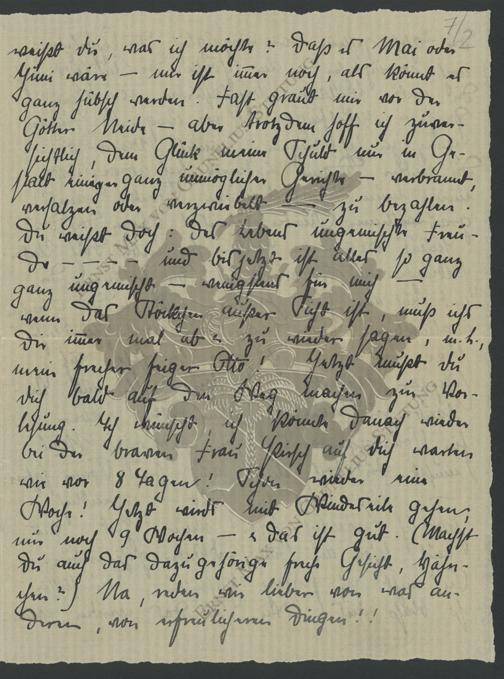 7/2
weißt du, was ich möchte? Daß es Mai oder
Juni wäre — mir ist immer noch, als könnt es
ganz hübsch werden. Fast graut mir vor der
Götter Neide — aber trotzdem hoff ich zuver-
sichtlich, dem Glück meine Schuld nur in Ge-
stalt einiger ganz unmöglicher Gerichte — verbrannt,
versalzen oder verzwiebelt — zu bezahlen.
Du weißt doch: des Lebens ungemischte Freu-
de — — — — und bis jetzt ist alles so ganz
ganz ungemischt — wenigstens für mich —
wenn das Böckchen außer Sicht ist, muß ichs
dir immer mal ab u. zu wieder sagen,
mein frecher feiger Otto! Jetzt mußt du
dich bald auf den Weg machen zur Vor-
lesung. Ich wünscht ich könnte danach wieder
bei der braven Frau Hirsch auf dich warten
wie vor 8 Tagen! Schon wieder eine
Woche! Jetzt wirds mit Windeseile gehen,
nur noch 9 Wochen — u. das ist gut. (Machst
du auch das dazugehörige freche Gesicht,
chen?) Na, reden wir lieber von was an-
derem, von erfreulicheren Dingen!!